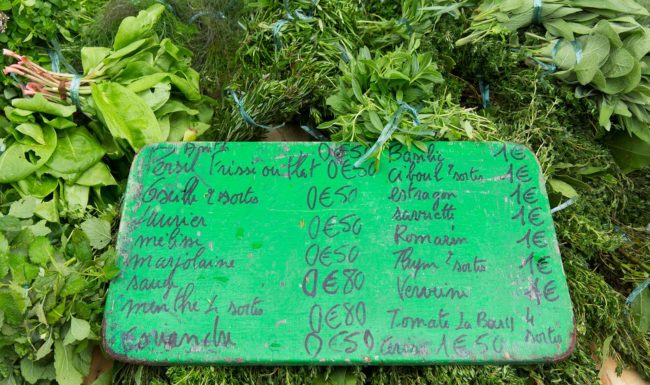 Aneth 0€50
Persil frisé ou Plat 0€50
Oseille 2 sortes 0€50
Laurier 0€50
melisse 0€50
marjolaine 0€80
sauge 0€80
menthe 4 sortes 0€50
Basilic 1€
Ciboul 2 sortes 1€
estragon 1€
sarriette 1€
Romarin 1€
Thym 2 sortes 1€
Verveine 1€
Tomate 4 sortes
Ceris 1€50